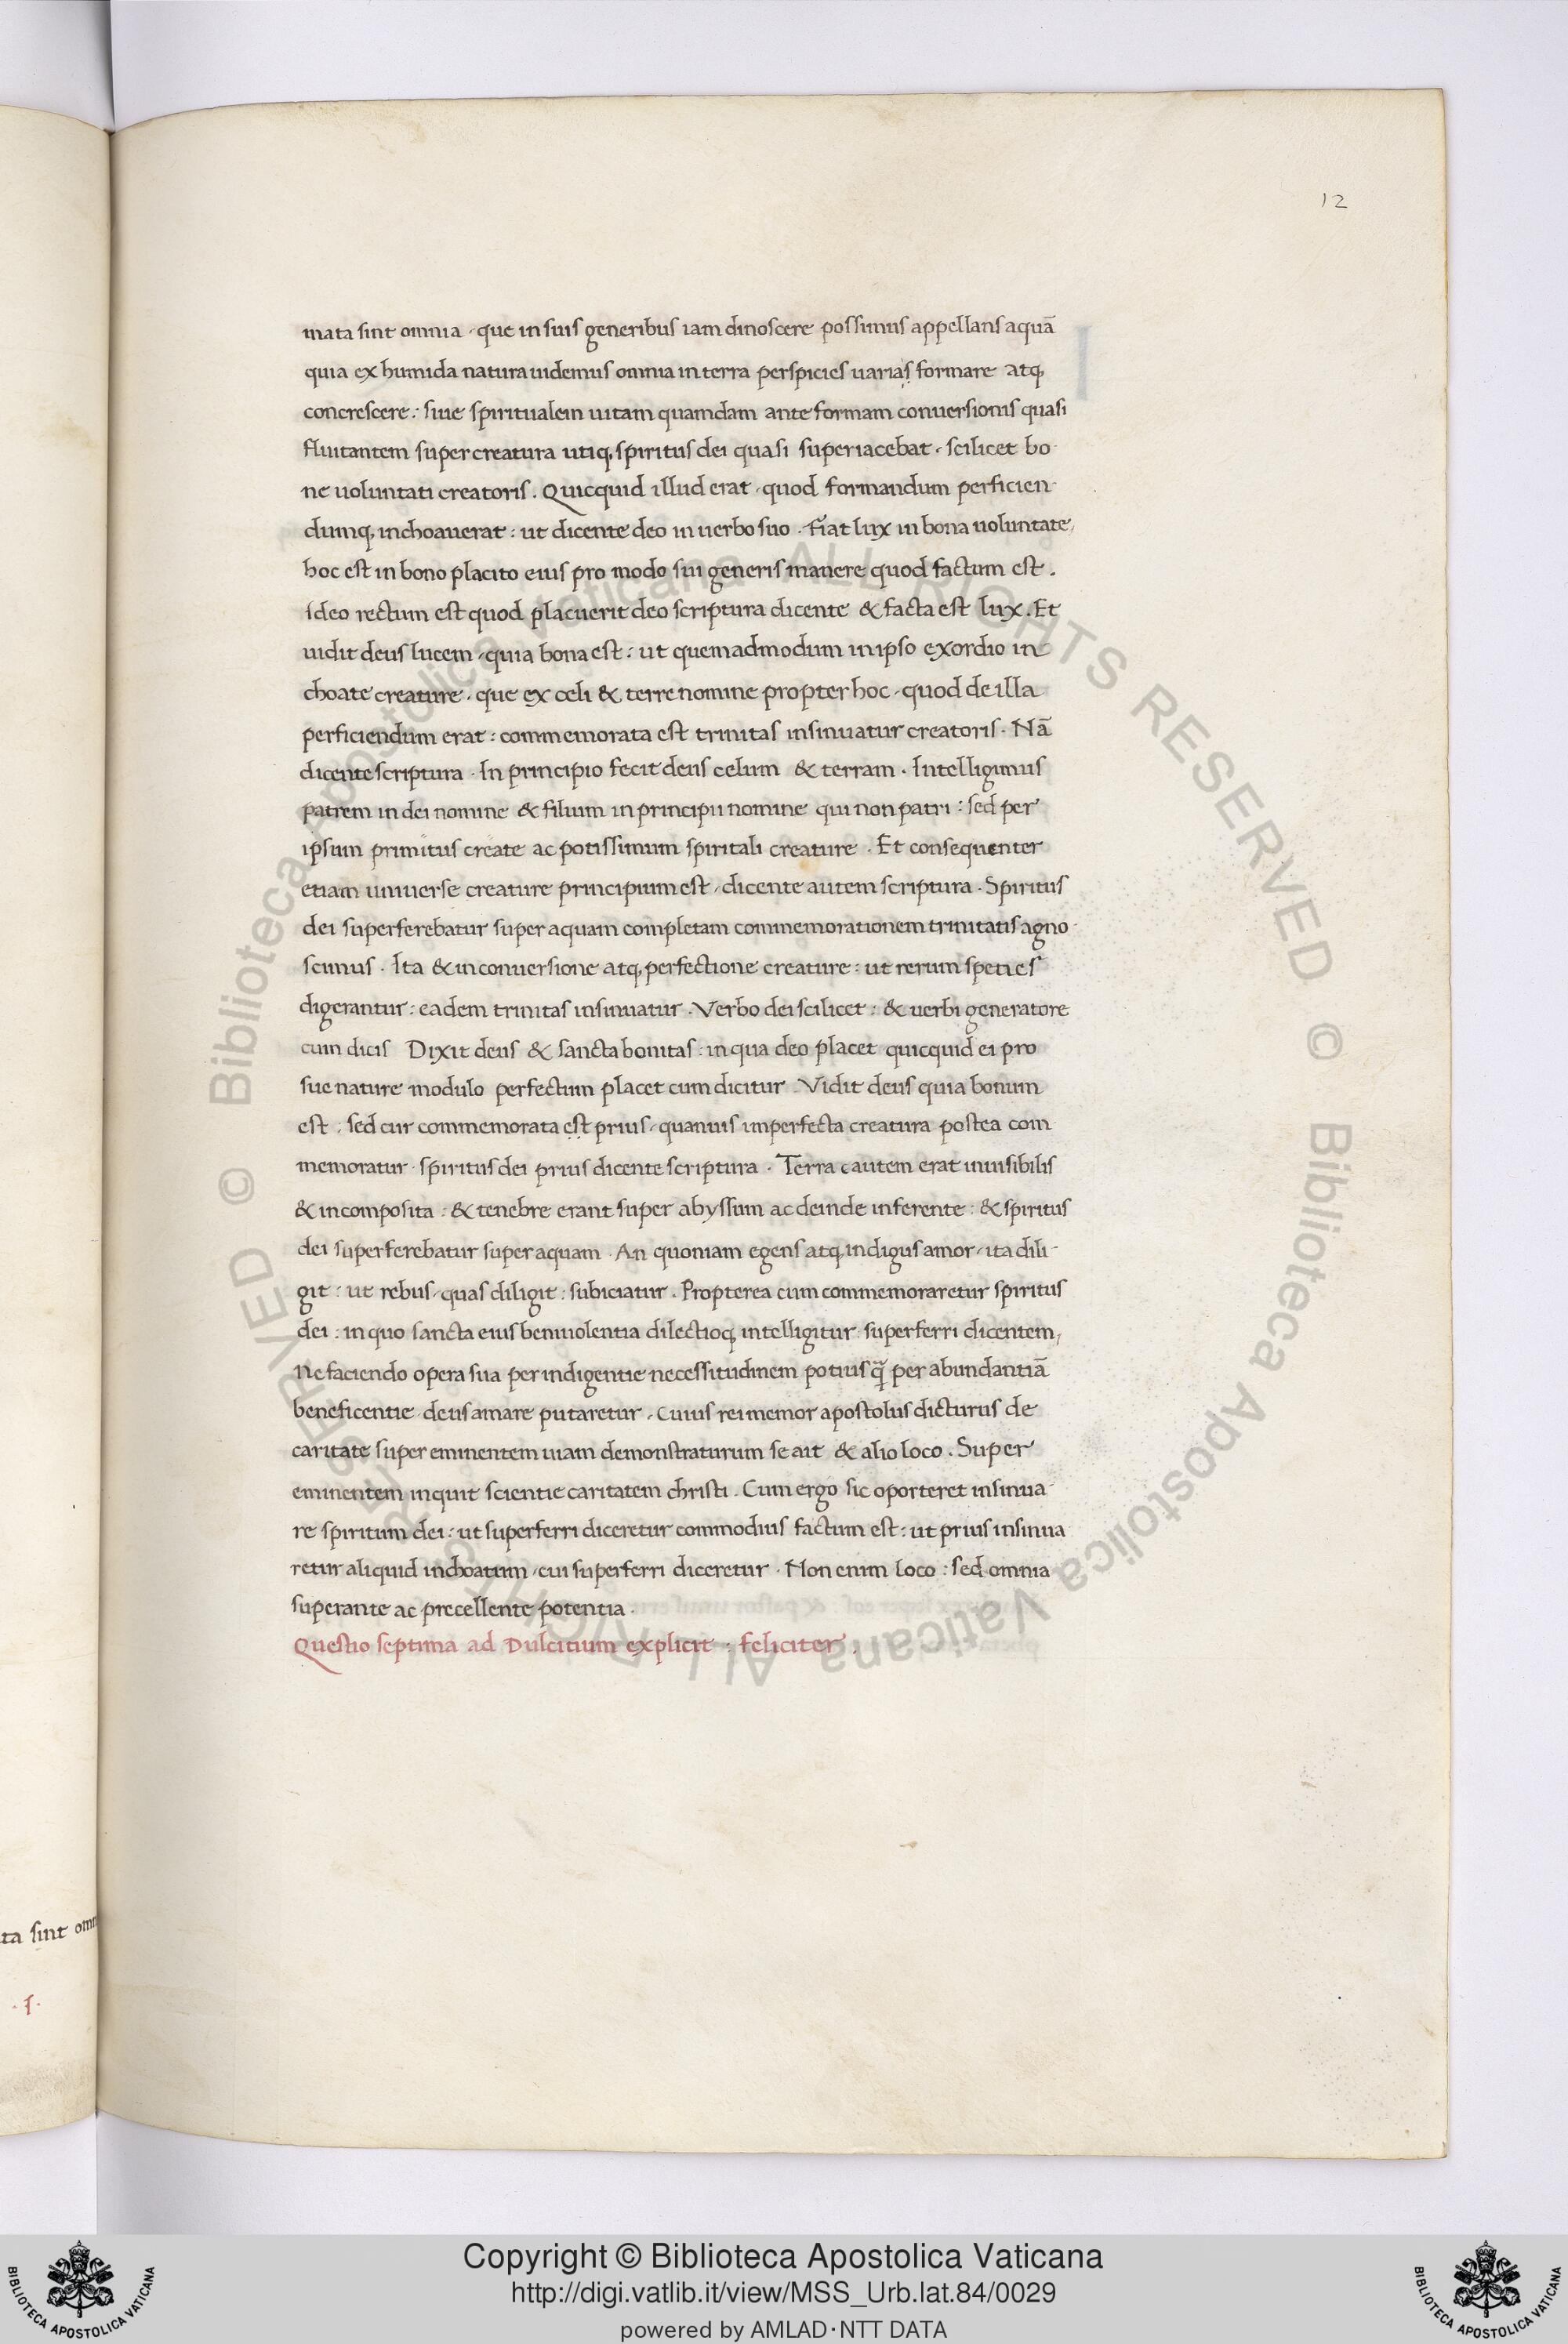 12
mata sint omnia · que in suis generibus iam dinoscere possimus appellans aquā
quia ex humida natura uidemus omnia in terra perspicies uarias formare atq;
concrescere : siue spiritualem uitam quamdam ante formam conuersionis quasi
fluitantem super creatura utiq; spiritus dei quasi superiacebat · scilicet bo-
ne uoluntati creatoris . Quicquid illud erat · quod formandum perficien-
dumq; inchoauerat : ut dicente deo in uerbo suo . Fiat lux in bona uoluntate,
hoc est in bono placito eius pro modo sui generis manere quod factum est .
ideo rectum est quod placuerit deo scriptura dicente & facta est lux . Et
uidit deus lucem · quia bona est : ut quemadmodum in ipso exordio in
choate creature · que ex celi & terre nomine propter hoc · quod de illa
perficiendum erat : commemorata est trinitas insinuatur creatoris . Nā
dicente scriptura · In principio fecit deus celum & terram . Intelligimus
patrem in dei nomine & filium in principii nomine qui non patri : sed per
ipsum primitus create ac potissimum spiritali creature . Et consequenter
etiam uniuerse creature principium est · dicente autem scriptura . Spiritus
dei superferebatur super aquam completam commemorationem trinitatis agno-
scimus . Ita & in conuersione atq; perfectione creature : ut rerum speties
digerantur : eadem trinitas insinuatur . Verbo dei scilicet : & uerbi generatore
cum dicis Dixit deus & sancta bonitas : in qua deo placet quicquid ei pro
sue nature modulo perfectum placet cum dicitur . Vidit deus quia bonum
est : sed cur commemorata est prius · quanuis imperfecta creatura postea com
memoratur · spiritus dei prius dicente scriptura . Terra autem erat inuisibilis
& incomposita : & tenebre erant super abyssum ac deinde inferente : & spiritus
dei superferebatur super aquam . An quoniam egens atq; indigus amor · ita dili-
git : ut rebus · quas diligit : subiciatur . Propterea cum commemoraretur spiritus
dei : in quo sancta eius beniuolentia dilectioq; intelligitur superferri dicentem,
Ne faciendo opera sua per indigentie necessitudinem potius q̃ per abundantiā
beneficentie deus amare putaretur . Cuius rei memor apostolus dicturus de
caritate super eminentem uiam demonstraturum se ait & alio loco . Super
eminentem inquit scientie caritatem christi . Cum ergo sic oporteret insinua-
re spiritum dei : ut superferri diceretur commodius factum est : ut prius insinua
retur aliquid inchoatum · cui superferri diceretur . Non enim loco : sed omnia
superante ac precellente potentia .
Questio septima ad Dulcitium explicit : feliciter .
ta sint omn
· f ·
© Biblioteca Apostolica Vaticana ALL RIGHTS RESERVED © Biblioteca Apostolica Vaticana ALL RIGHTS RESERVED
Copyright © Biblioteca Apostolica Vaticana
http://digi.vatlib.it/view/MSS_Urb.lat.84/0029
powered by AMLAD·NTT DATA
BIBLIOTECA APOSTOLICA VATICANA
BIBLIOTECA APOSTOLICA VATICANA